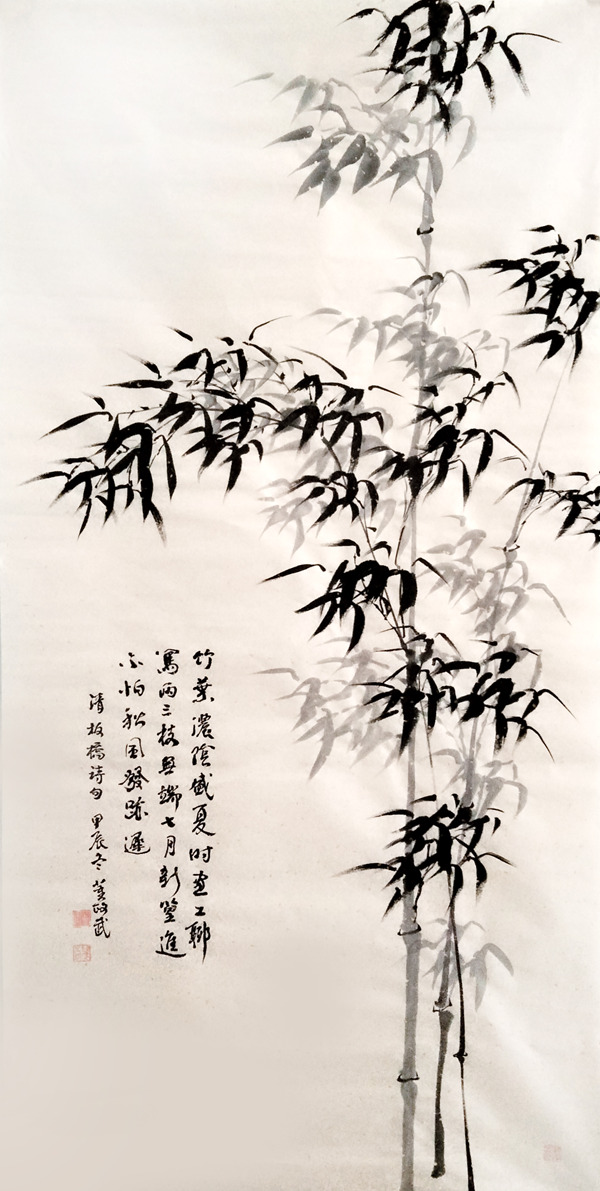 竹葉濃陰盛夏时画工聊
寫兩三枝無端七月新篁進
不怕秋風發跡遲
清板橋詩句 甲辰冬 政武